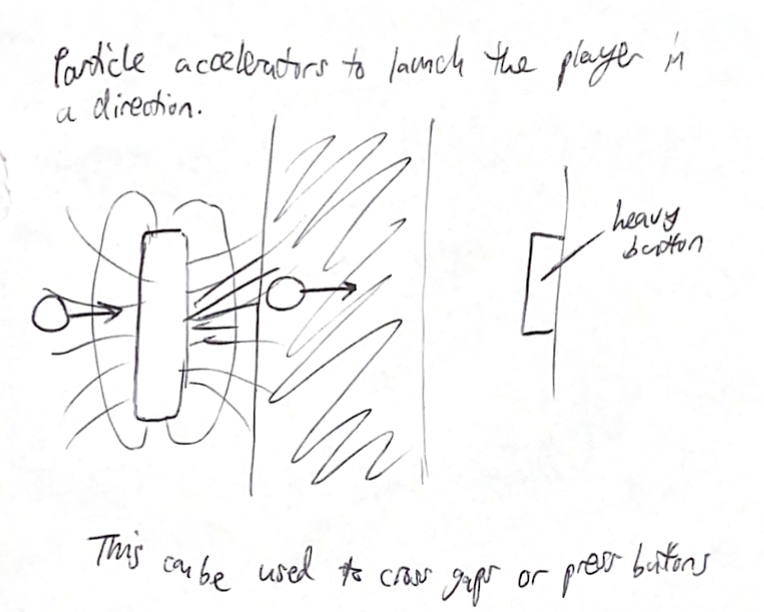 Particle accelerators to launch the player in
a direction.
heavy
button
This can be used to cross gaps or press buttons